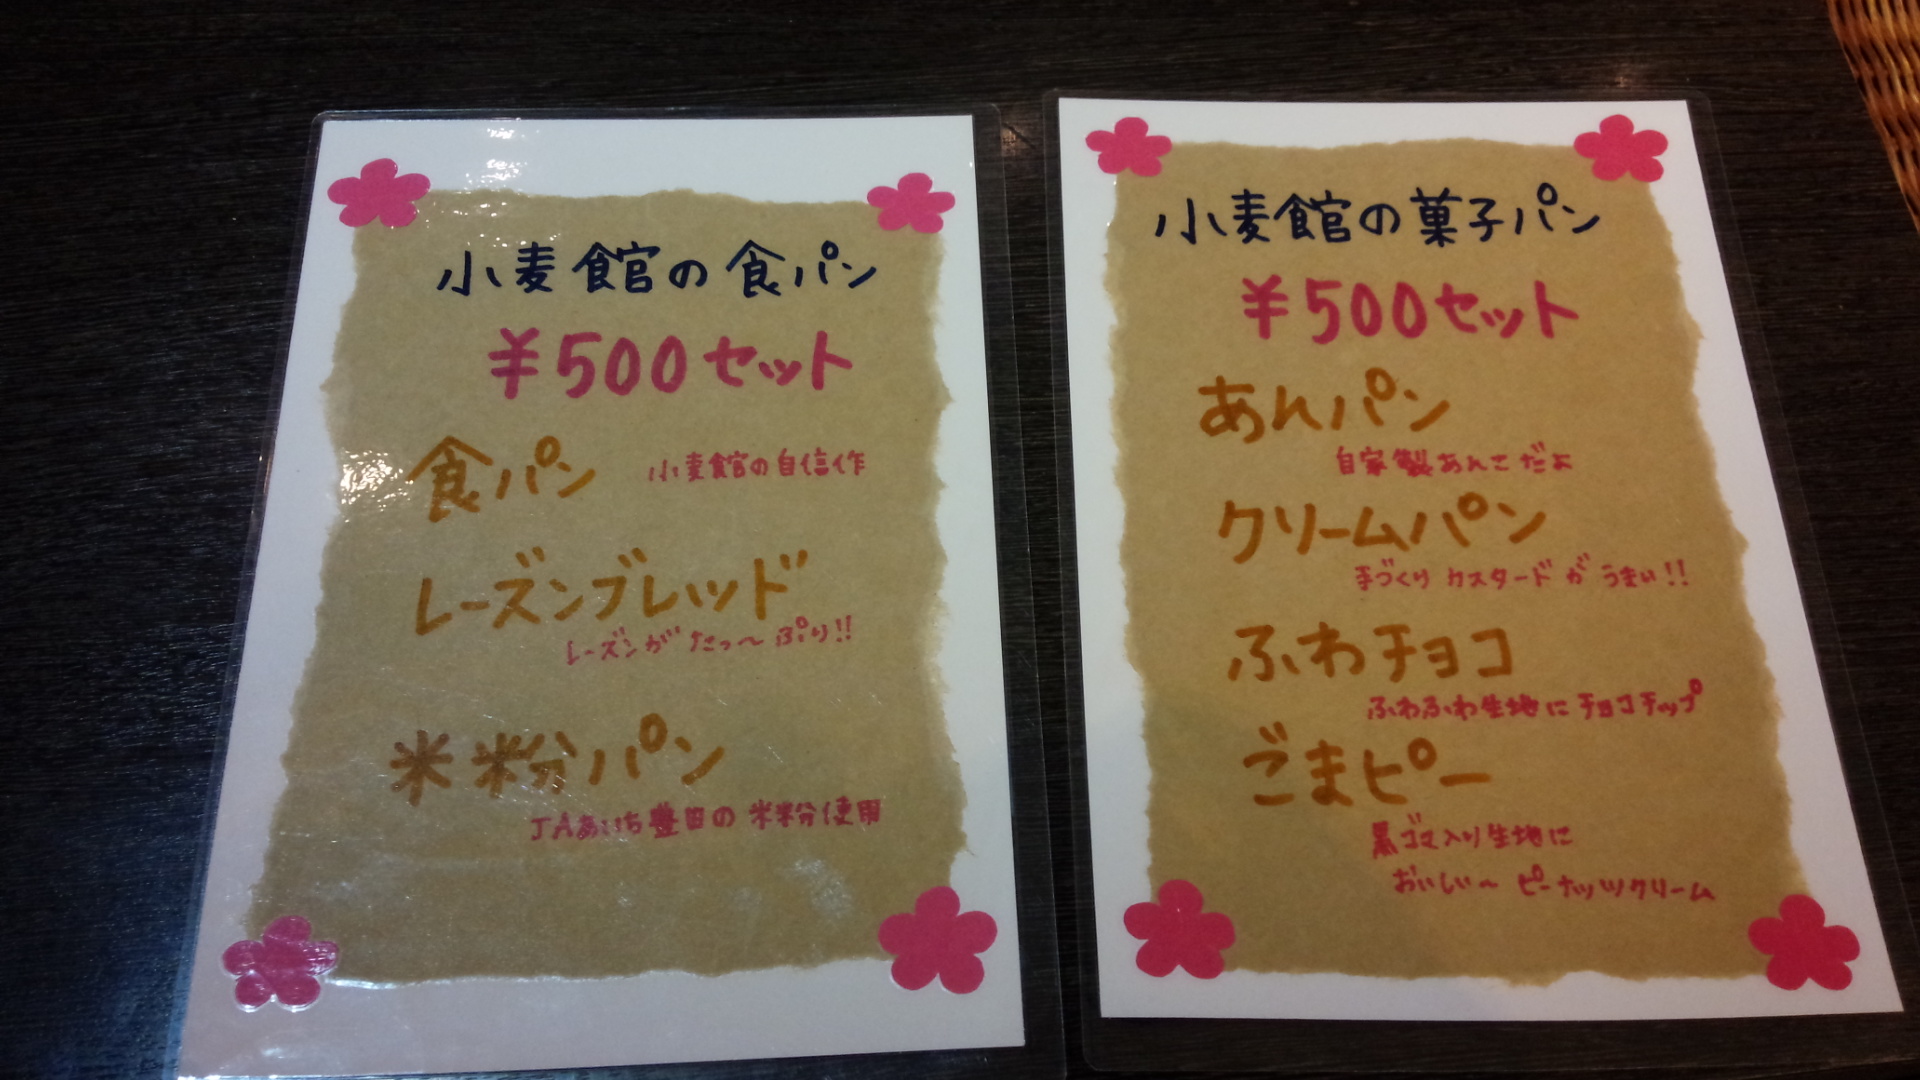 小麦館の食パン
¥500セット
食パン 小麦館の自信作
レーズンブレッド
レーズンがたっ～ぷり!!
米粉パン
JAあいち豊田の米粉使用
小麦館の菓子パン
¥500セット
あんパン
自家製あんこだよ
クリームパン
手づくりカスタードがうまい!!
ふわチョコ
ふわふわ生地にチョコチップ
ごまピー
黒ゴマ入り生地に
おいしい～ピーナッツクリーム